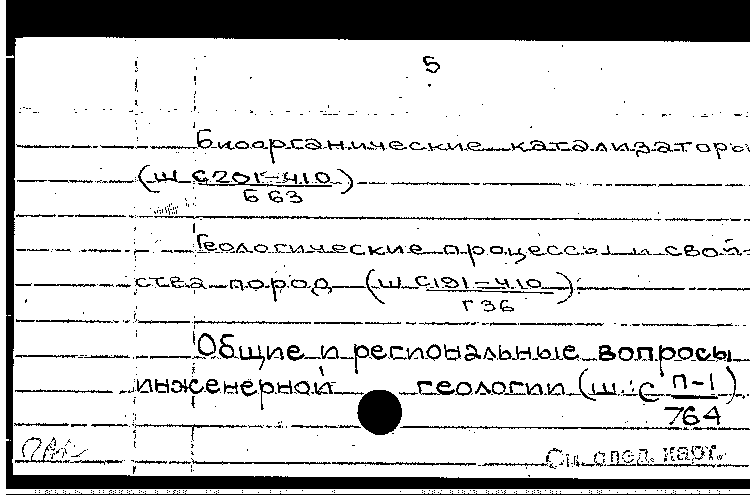 5
Биоорганические катализаторы
(ш С201-410
Б 63)
Геологические процессы и свой-
ства пород (ш С191-410
Г 36)
Общие и региональные вопросы
инженерной геологии (ш. С П-1
764)
См. след. карт.